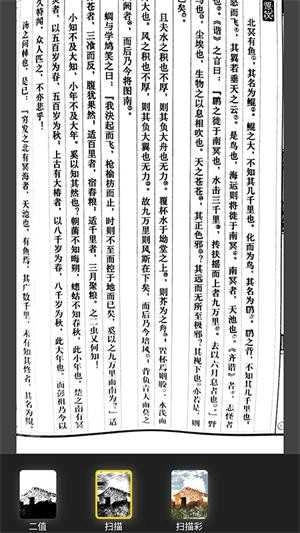 北冥有鱼，其名为鲲。鲲之大，不知其几千里也。化而为鸟，其名为鹏。鹏之背，不知其几千里也，
怒而飞，其翼若垂天之云。是鸟也，海运则将徙于南冥。南冥者，天池也。《齐谐》者，志怪者
也。《谐》之言曰：“鹏之徙于南冥也，水击三千里，抟扶摇而上者九万里，去以六月息者也。”野
马也，尘埃也，生物之以息相吹也。天之苍苍，其正色邪？其远而无所至极邪？其视下也，亦若是，则
且夫水之积也不厚，则其负大舟也无力。覆杯水于坳堂之上，则芥为之舟，置杯焉则胶，水浅而
大也。风之积也不厚，则其负大翼也无力。故九万里则风斯在下矣，而后乃今培风。背负青天而莫之
阏者，而后乃今将图南。
蜩与学鸠笑之曰：“我决起而飞，枪榆枋而止，时则不至而控于地而已矣，奚以之九万里而南为？”适
苍者，三飡而反，腹犹果然；适百里者，宿舂粮，适千里者，三月聚粮。之二虫又何知！
小知不及大知，小年不及大年。奚以知其然也？朝菌不知晦朔，蟪蛄不知春秋，此小年也。楚之南有冥
者，以五百岁为春，五百岁为秋，上古有大椿者，以八千岁为春，八千岁为秋，此大年也。而彭祖乃今以
久特闻，众人匹之，不亦悲乎！
汤之问棘也，是已：“穷发之北有冥海者，天池也。有鱼焉，其广数千里，未有知其修者，其名为鲲。
二值
扫描
扫描彩